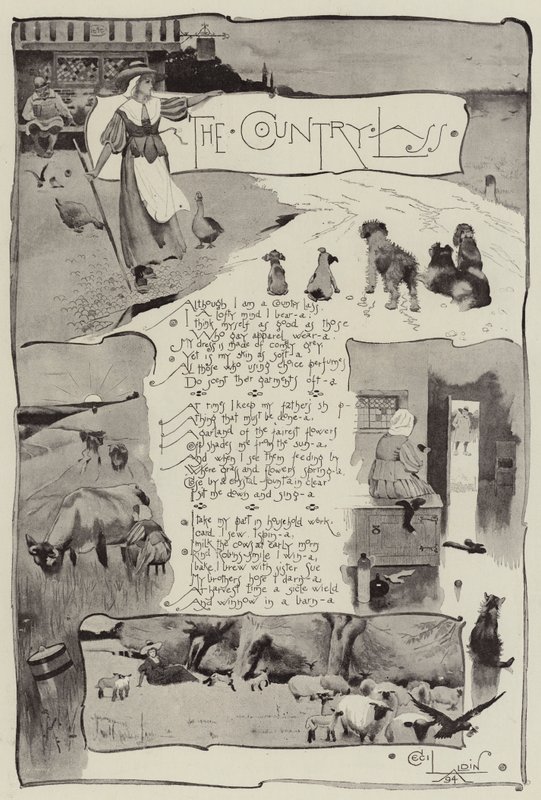 THE · COUNTRY · LASS ·
Although I am a Country Lass
A lofty mind I bear-a:
I think myself as good as those
Who gay apparel wear-a.
My dress is made of comely grey
Yet is my skin as soft-a
As those who using choice perfumes
Do scent their garments oft-a.
At times I keep my fathers sheep-
Thing that must be done-a,
A garland of the fairest flowers
Oft shades me from the sun-a,
And when I see them feeding by
Where grass and flowers spring-a
Close by a crystal-fountain clear
I sit me down and sing-a
I take my part in household work.
I card I sew I spin-a,
I milk the cows at early morn
Kind Robins-smile I win-a,
I bake I brew with sister Sue
My brothers hose I darn-a,
At harvest time a sicle wield
And winnow in a barn-a
CECIL ALDIN
94